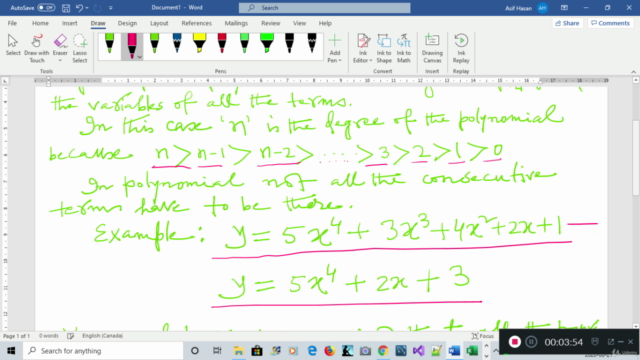 AutoSave Off Document1 - Word Search Asif Hasan AM
File Home Insert Draw Design Layout References Mailings Review View Help Share Comments
Select Draw with Touch Eraser Lasso Select Add Pen Ink Editor Ink to Shape Ink to Math Ink Replay
Tools Pens Convert Replay
the variables of all the terms.
In this case 'n' is the degree of the polynomial
because n > n-1 > n-2 > ..... > 3 > 2 > 1 > 0
In polynomial not all the consecutive
terms have to be there.
Example: y = 5x⁴ + 3x³ + 4x² + 2x + 1
y = 5x⁴ + 2x + 3
Page 1 of 1 0 words English (Canada) Focus
Type here to search
00:03:54